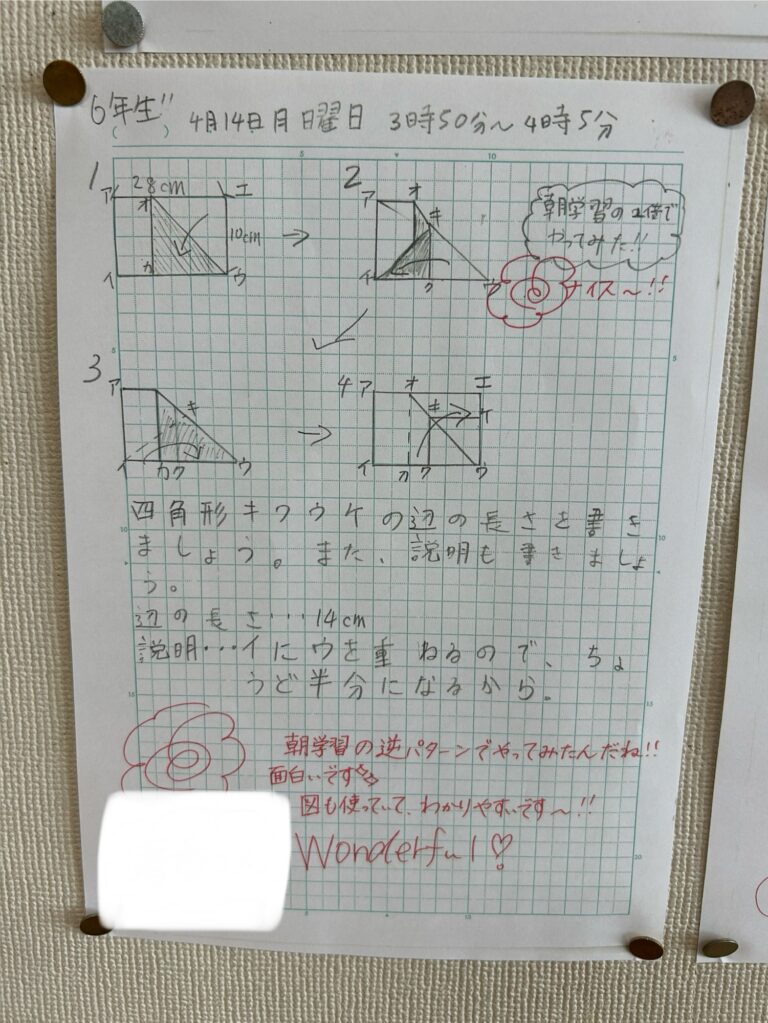 6年生!!
( )
4月14日月曜日 3時50分〜4時5分
1
ア 28cm エ
オ
10cm
イ カ ウ
2
ア オ
キ
イ ク ウ
朝学習の2倍で
やってみた!!
ナイス〜!!
3
ア
キ
イ カク ウ
4 ア オ エ
キ ケ
イ カ ク ウ
四角形キクウケの辺の長さを書き
ましょう。また、説明も書きましょ
う。
辺の長さ・・・14cm
説明・・・イにウを重ねるので、ちょ
うど半分になるから。
朝学習の逆パターンでやってみたんだね!!
面白いです
図も使っていて、わかりやすいです〜!!
Wonderful!